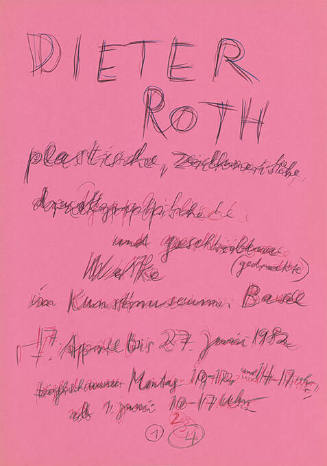 DIETER
ROTH
plastische, zeichnerische,
druckgraphische
und geschriebene
(gedruckte)
Werke
im Kunstmuseum Basel
17. April bis 27. Juni 1982
Montag 10-12 und 14-17 Uhr,
ab 1. Juni 10-17 Uhr
1 4